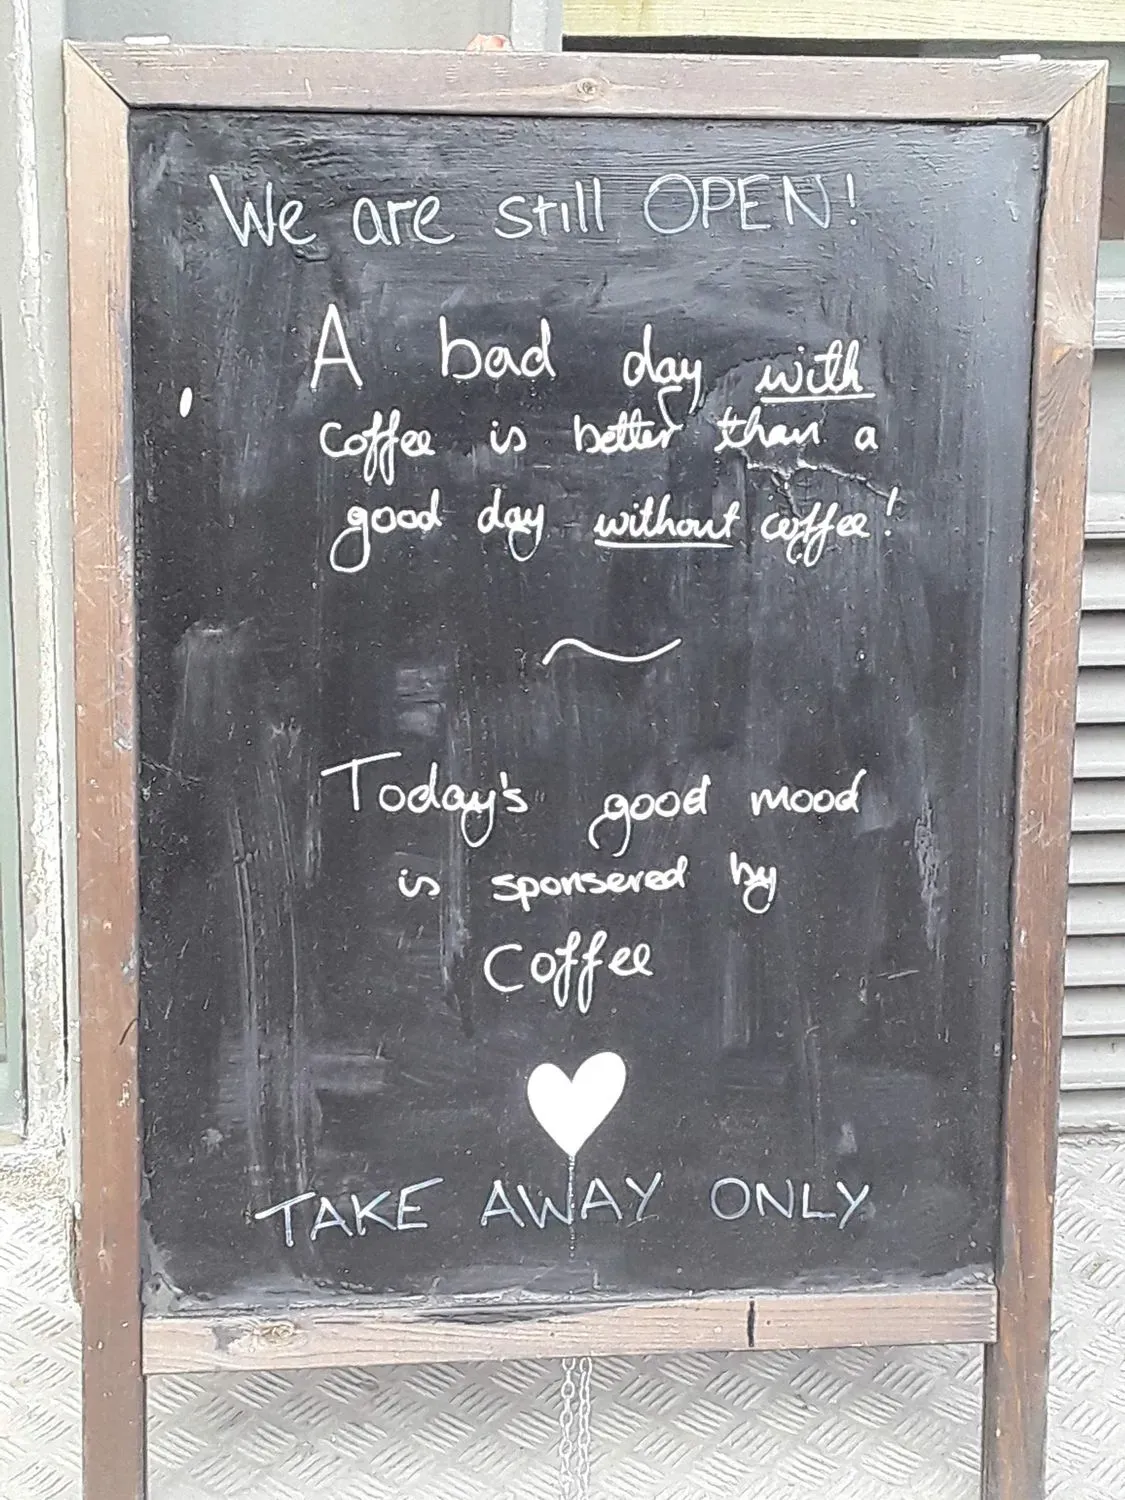 We are still OPEN!
A bad day with
coffee is better than a
good day without coffee!
Today's good mood
is sponsered by
Coffee
TAKE AWAY ONLY